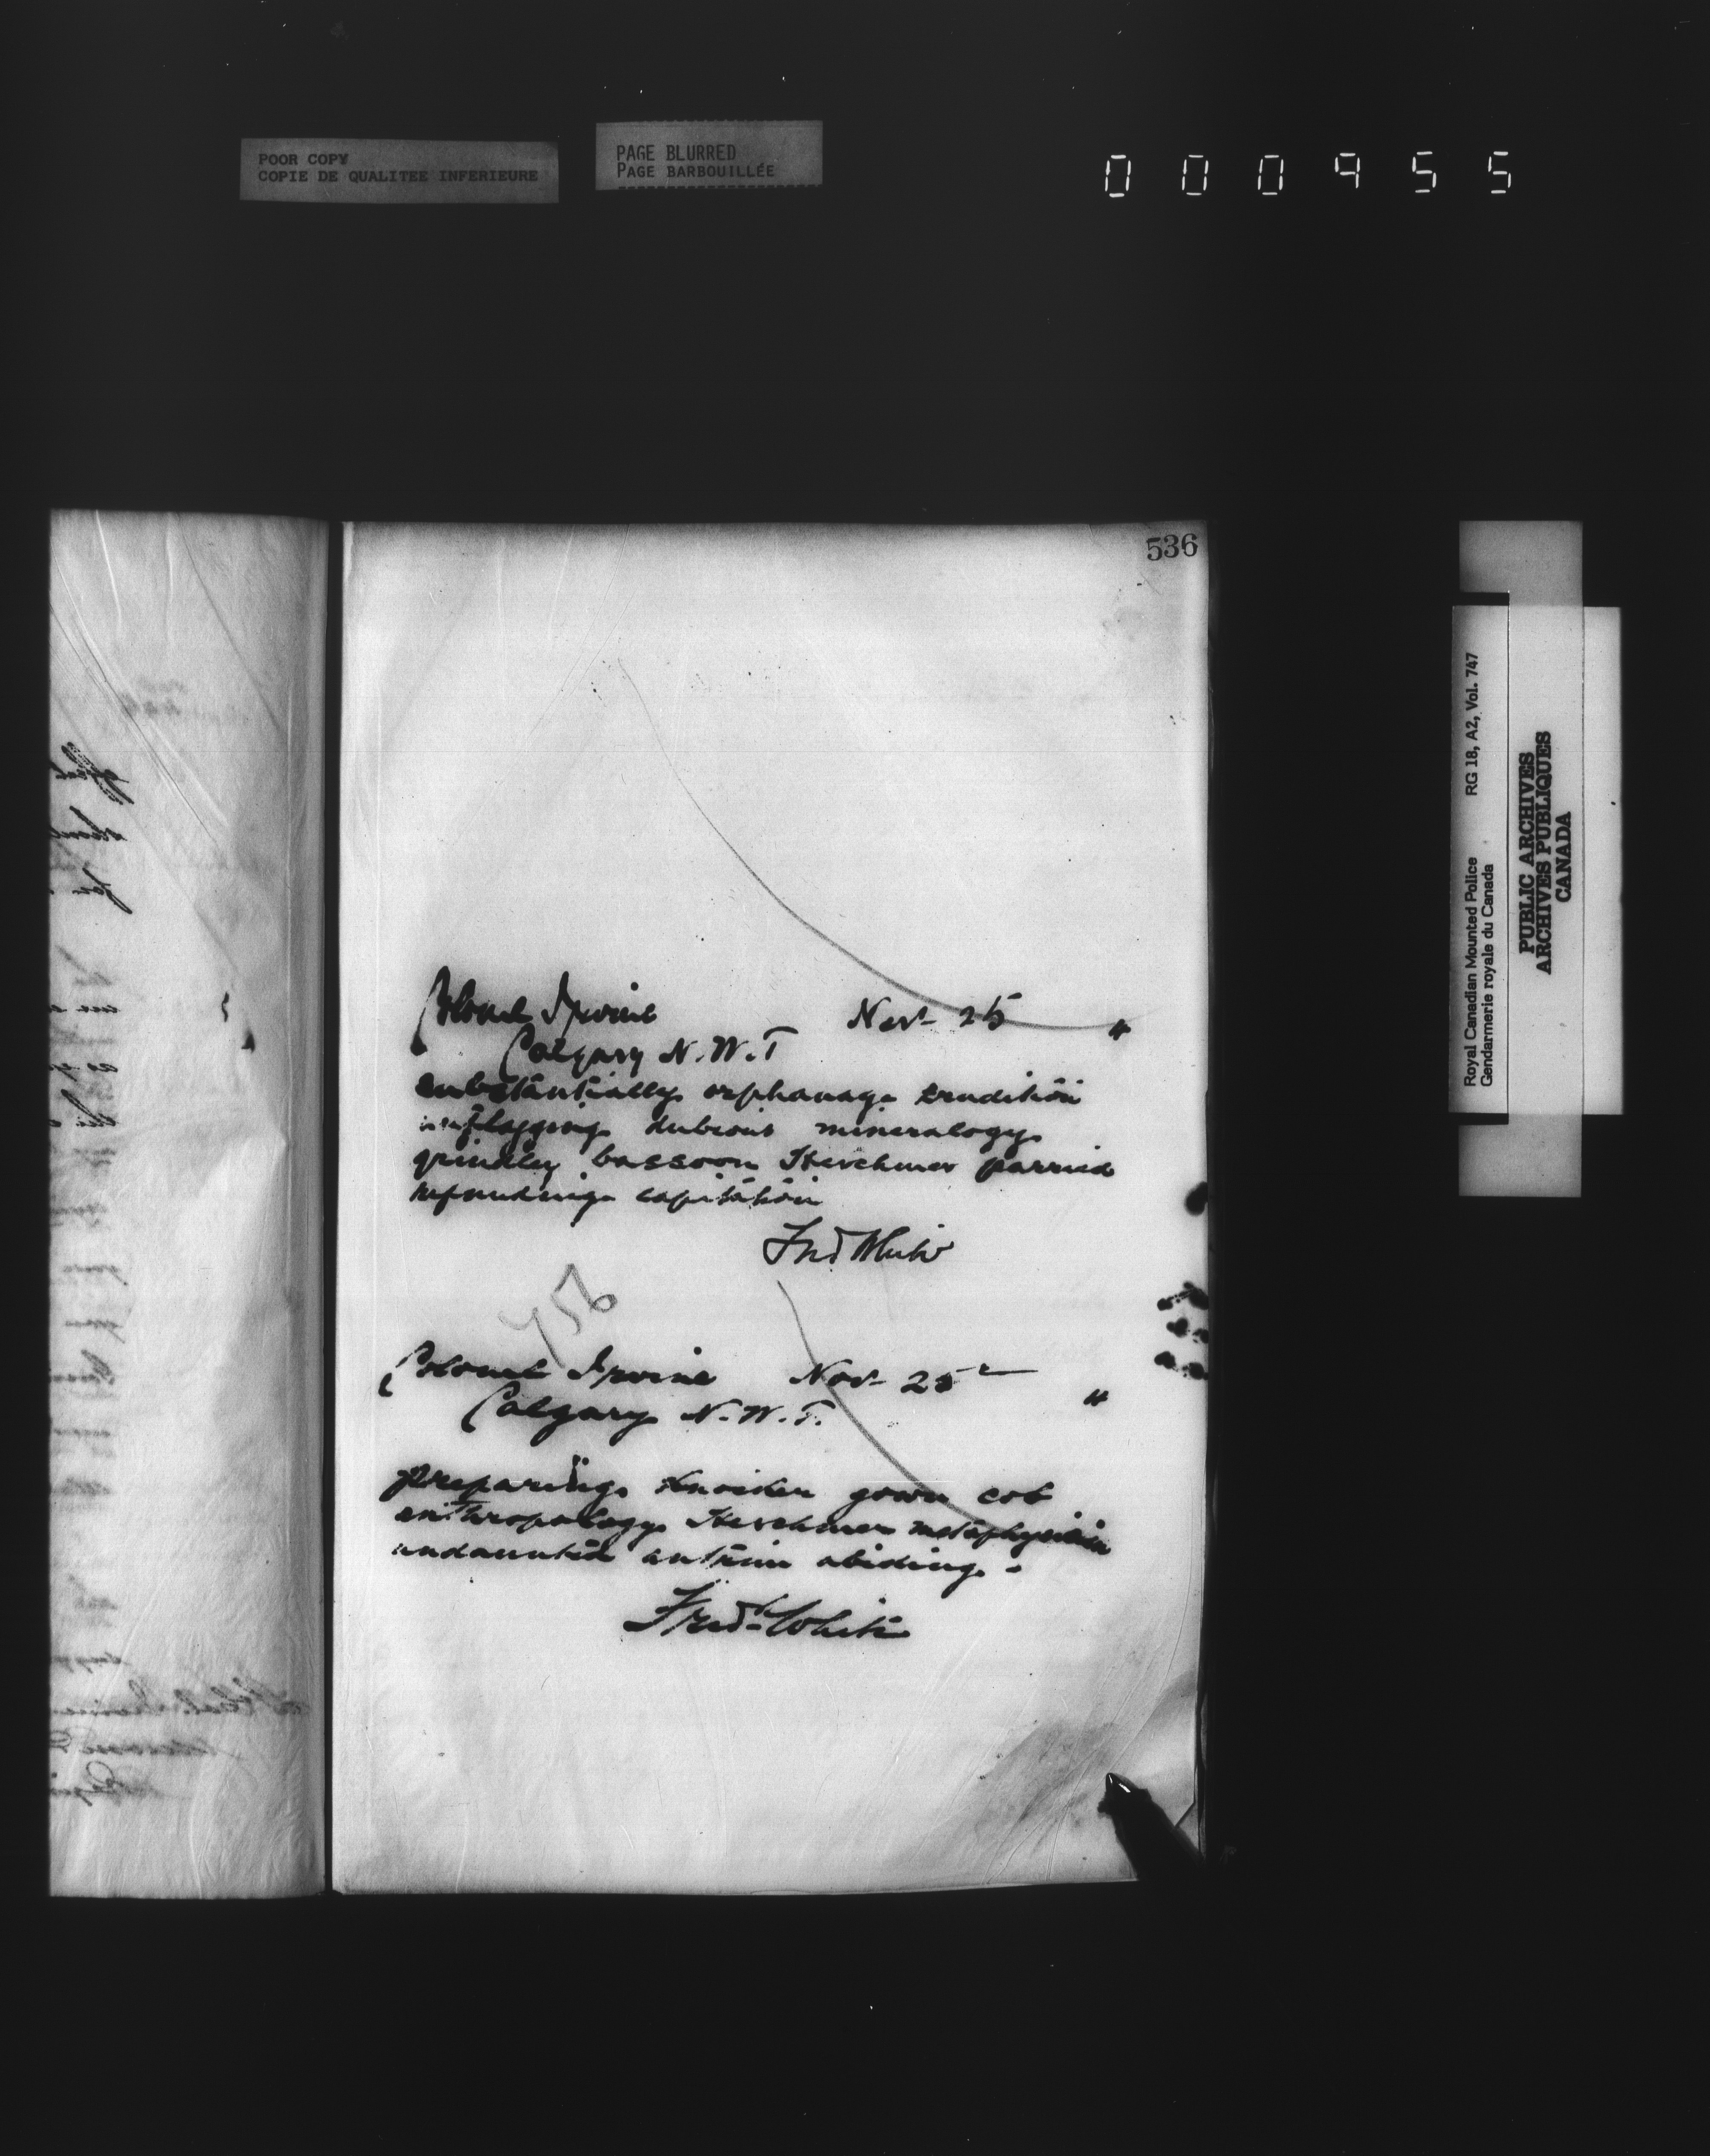 POOR COPY
COPIE DE QUALITEE INFERIEURE
PAGE BLURRED
PAGE BARBOUILLÉE
000955
536
Colonel Irvine Nov 25 "
Calgary N.W.T
substantially orphanage erudition
unflagging dubious mineralogy
bassoon Herchmer parried
capitation
Fred White
Colonel Irvine Nov 25 "
Calgary N.W.T.
Preparing gown cob
anthropology Herchmer metaphysician
undaunted antrim abiding -
Fred White
Royal Canadian Mounted Police RG 18, A2, Vol. 747
Gendarmerie royale du Canada
PUBLIC ARCHIVES
ARCHIVES PUBLIQUES
CANADA